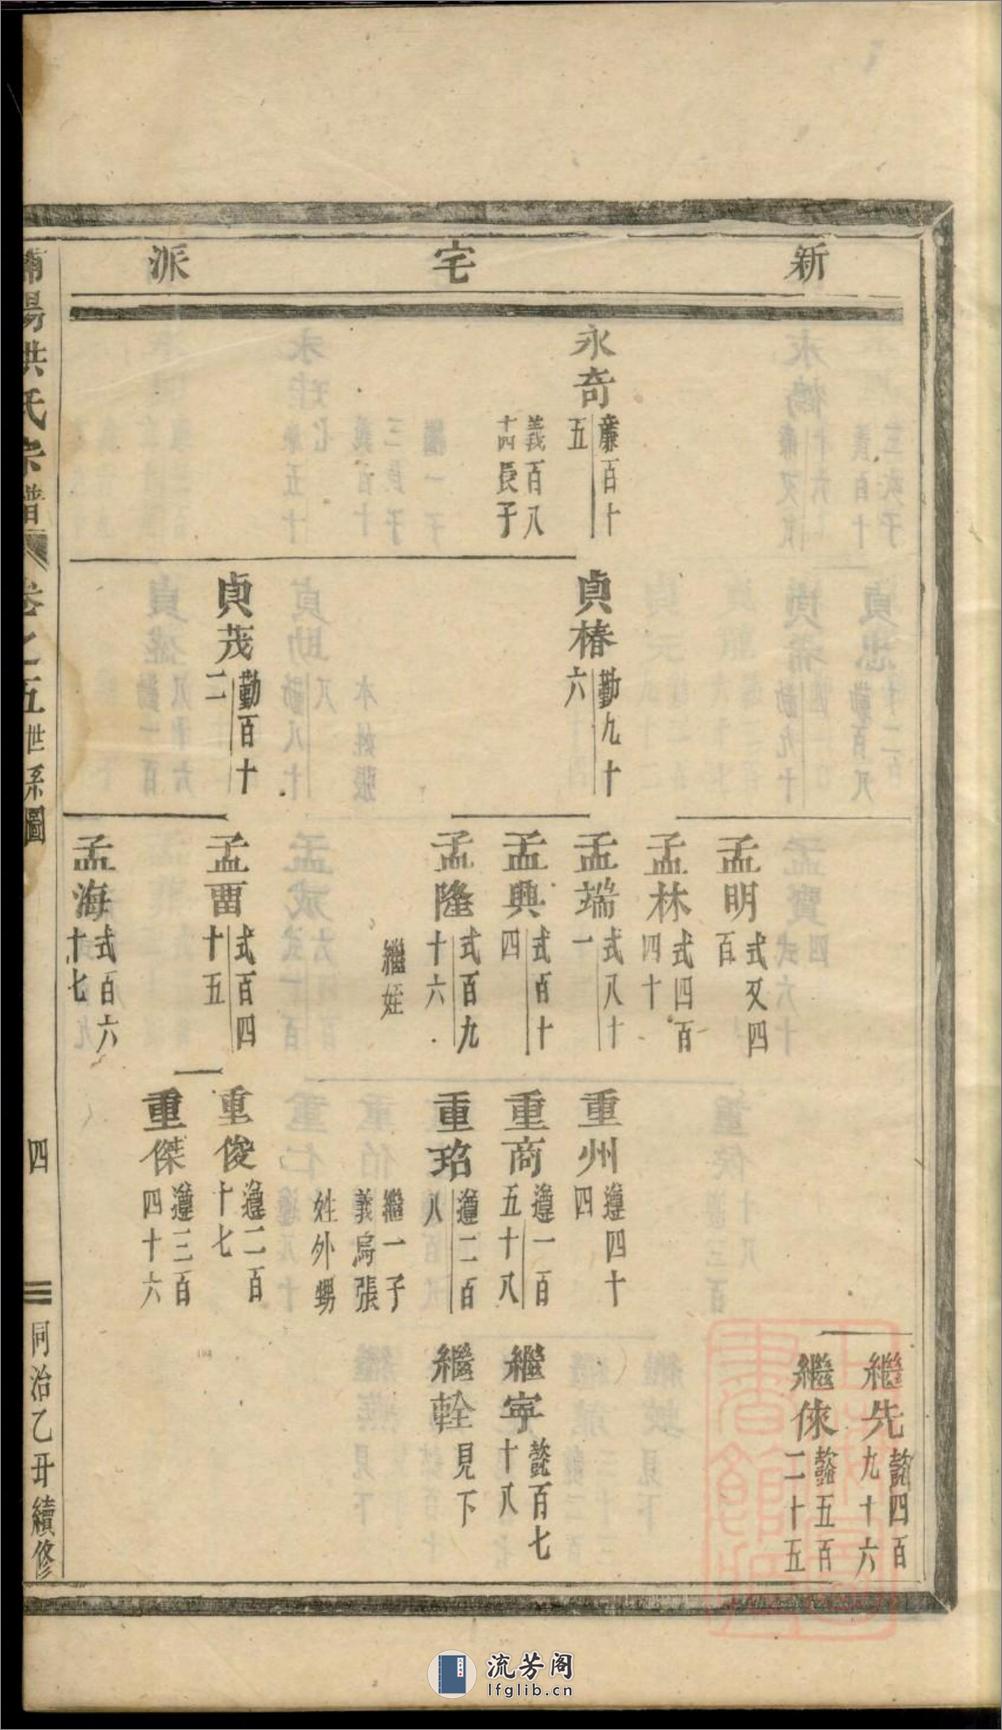 新宅派
永奇
廉百十
五
義百八
十四長子
貞椿
勤九十
六
貞茂
勤百十
二
孟明
式又四
百
孟林
式四百
四十
孟端
式八十
一
孟興
式百十
四
孟隆
式百九
十六
繼姪
孟畱
式百四
十五
孟海
式百六
十七
重州
遵四十
四
重商
遵一百
五十八
重珞
遵二百
八
繼一子
義烏張
姓外甥
重俊
遵二百
十七
重傑
遵三百
四十六
繼先
懿四百
九十六
繼倈
懿五百
二十五
繼寧
懿百七
十八
繼輇
見下
陽洪氏宗譜
卷之五
世系圖
四
同治乙丑續修
流芳阁
lfglib.cn